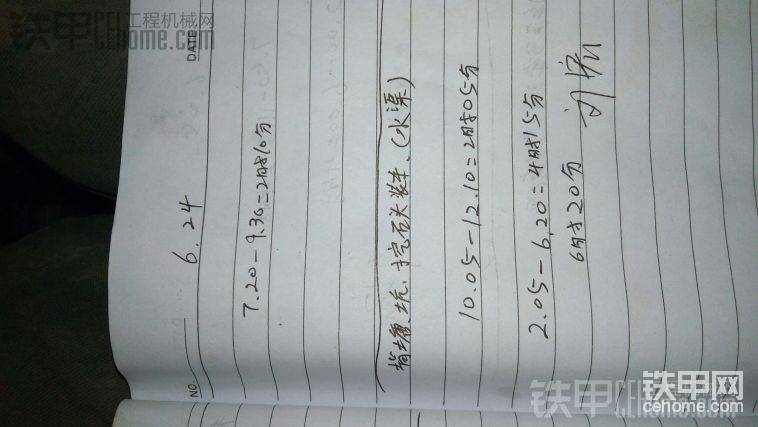 NO.
DATE
6.24
7.20-9.30=2时10分
挖石头装车、(水渠)
10.05-12.10=2时05分
2.05-6.20=4时15分
6时20分
铁甲 工程机械网
cehome.com
铁甲网
cehome.com